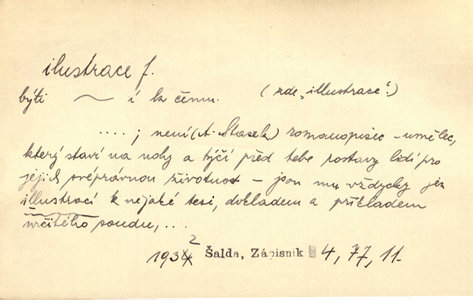 ilustrace f.
býti ~ í k čemu. (zde „illustrace“.)
....; není (A. Stašek) romanopisec – umělec,
který staví na nohy a týčí před tebe postavy lidí pro
jejich svéprávnou životnost – jsou mu vždycky jen
illustrací k nějaké tesi, dokladem a příkladem
určitého soudu, ...
1932 Šalda, Zápisník 4, 77, 11.